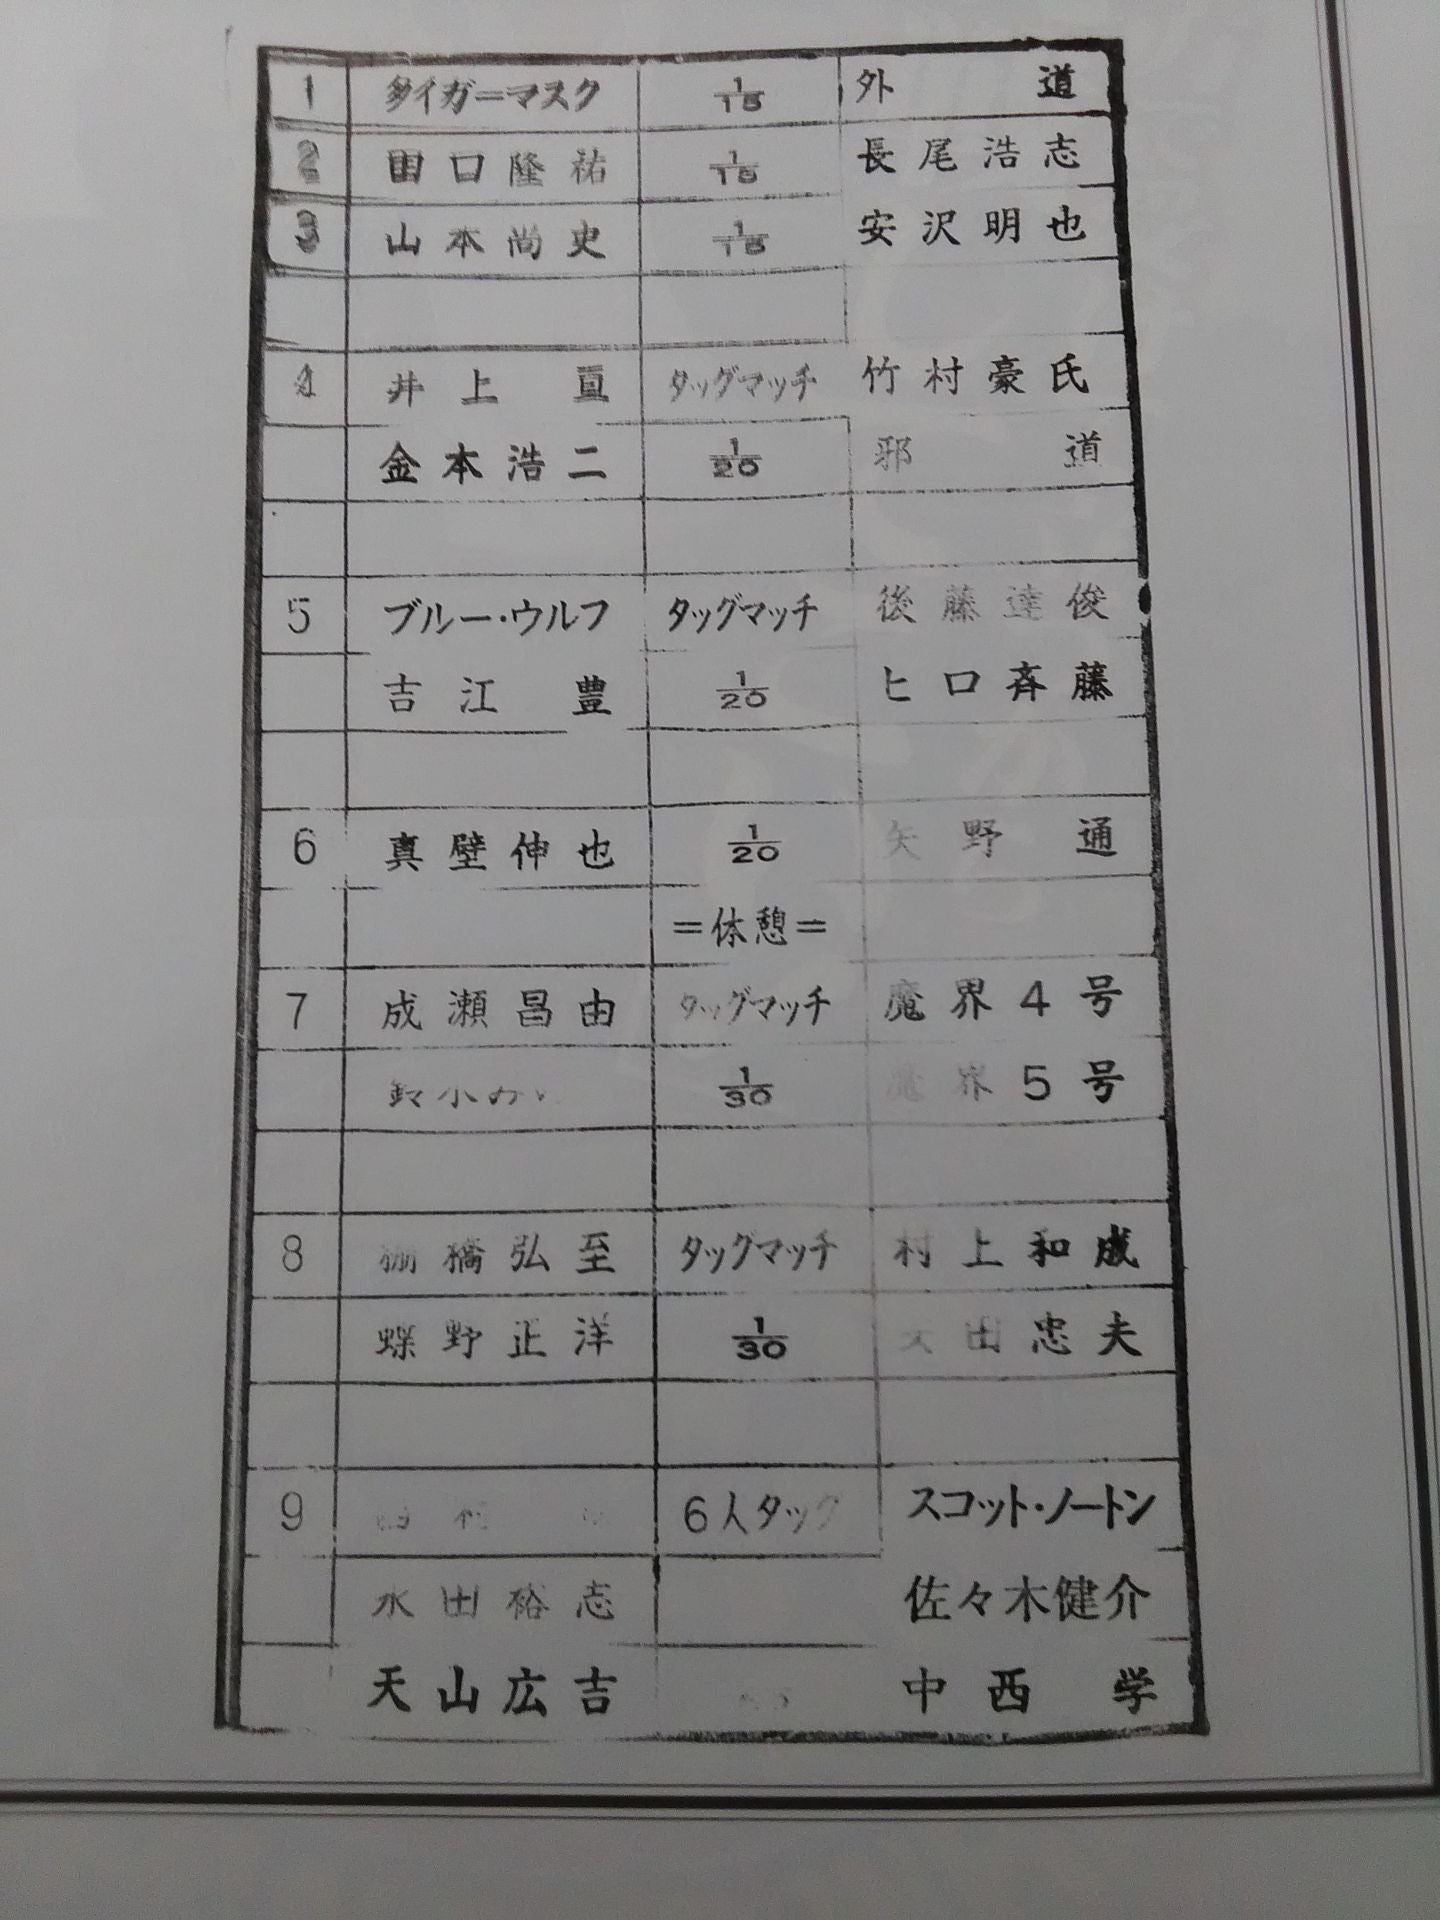 1 タイガ＝マスク 1/15 外道
2 田口隆祐 1/15 長尾浩志
3 山本尚史 1/15 安沢明也
4 井上亘 タッグマッチ 竹村豪氏
金本浩二 1/20 邪道
5 ブルー・ウルフ タッグマッチ 後藤達俊
吉江豊 1/20 ヒロ斉藤
6 真壁伸也 1/20 矢野通
＝休憩＝
7 成瀬昌由 タッグマッチ 魔界4号
1/30 魔界5号
8 棚橋弘至 タッグマッチ 村上和成
蝶野正洋 1/30
9 6人タッグ スコット・ノートン
永田裕志 佐々木健介
天山広吉 中西学